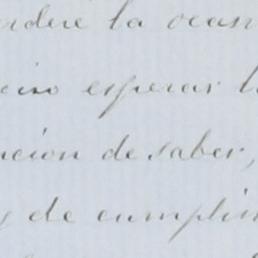 rdere la ocas
ciso esperar l
ncion de saber,
y de cumplim